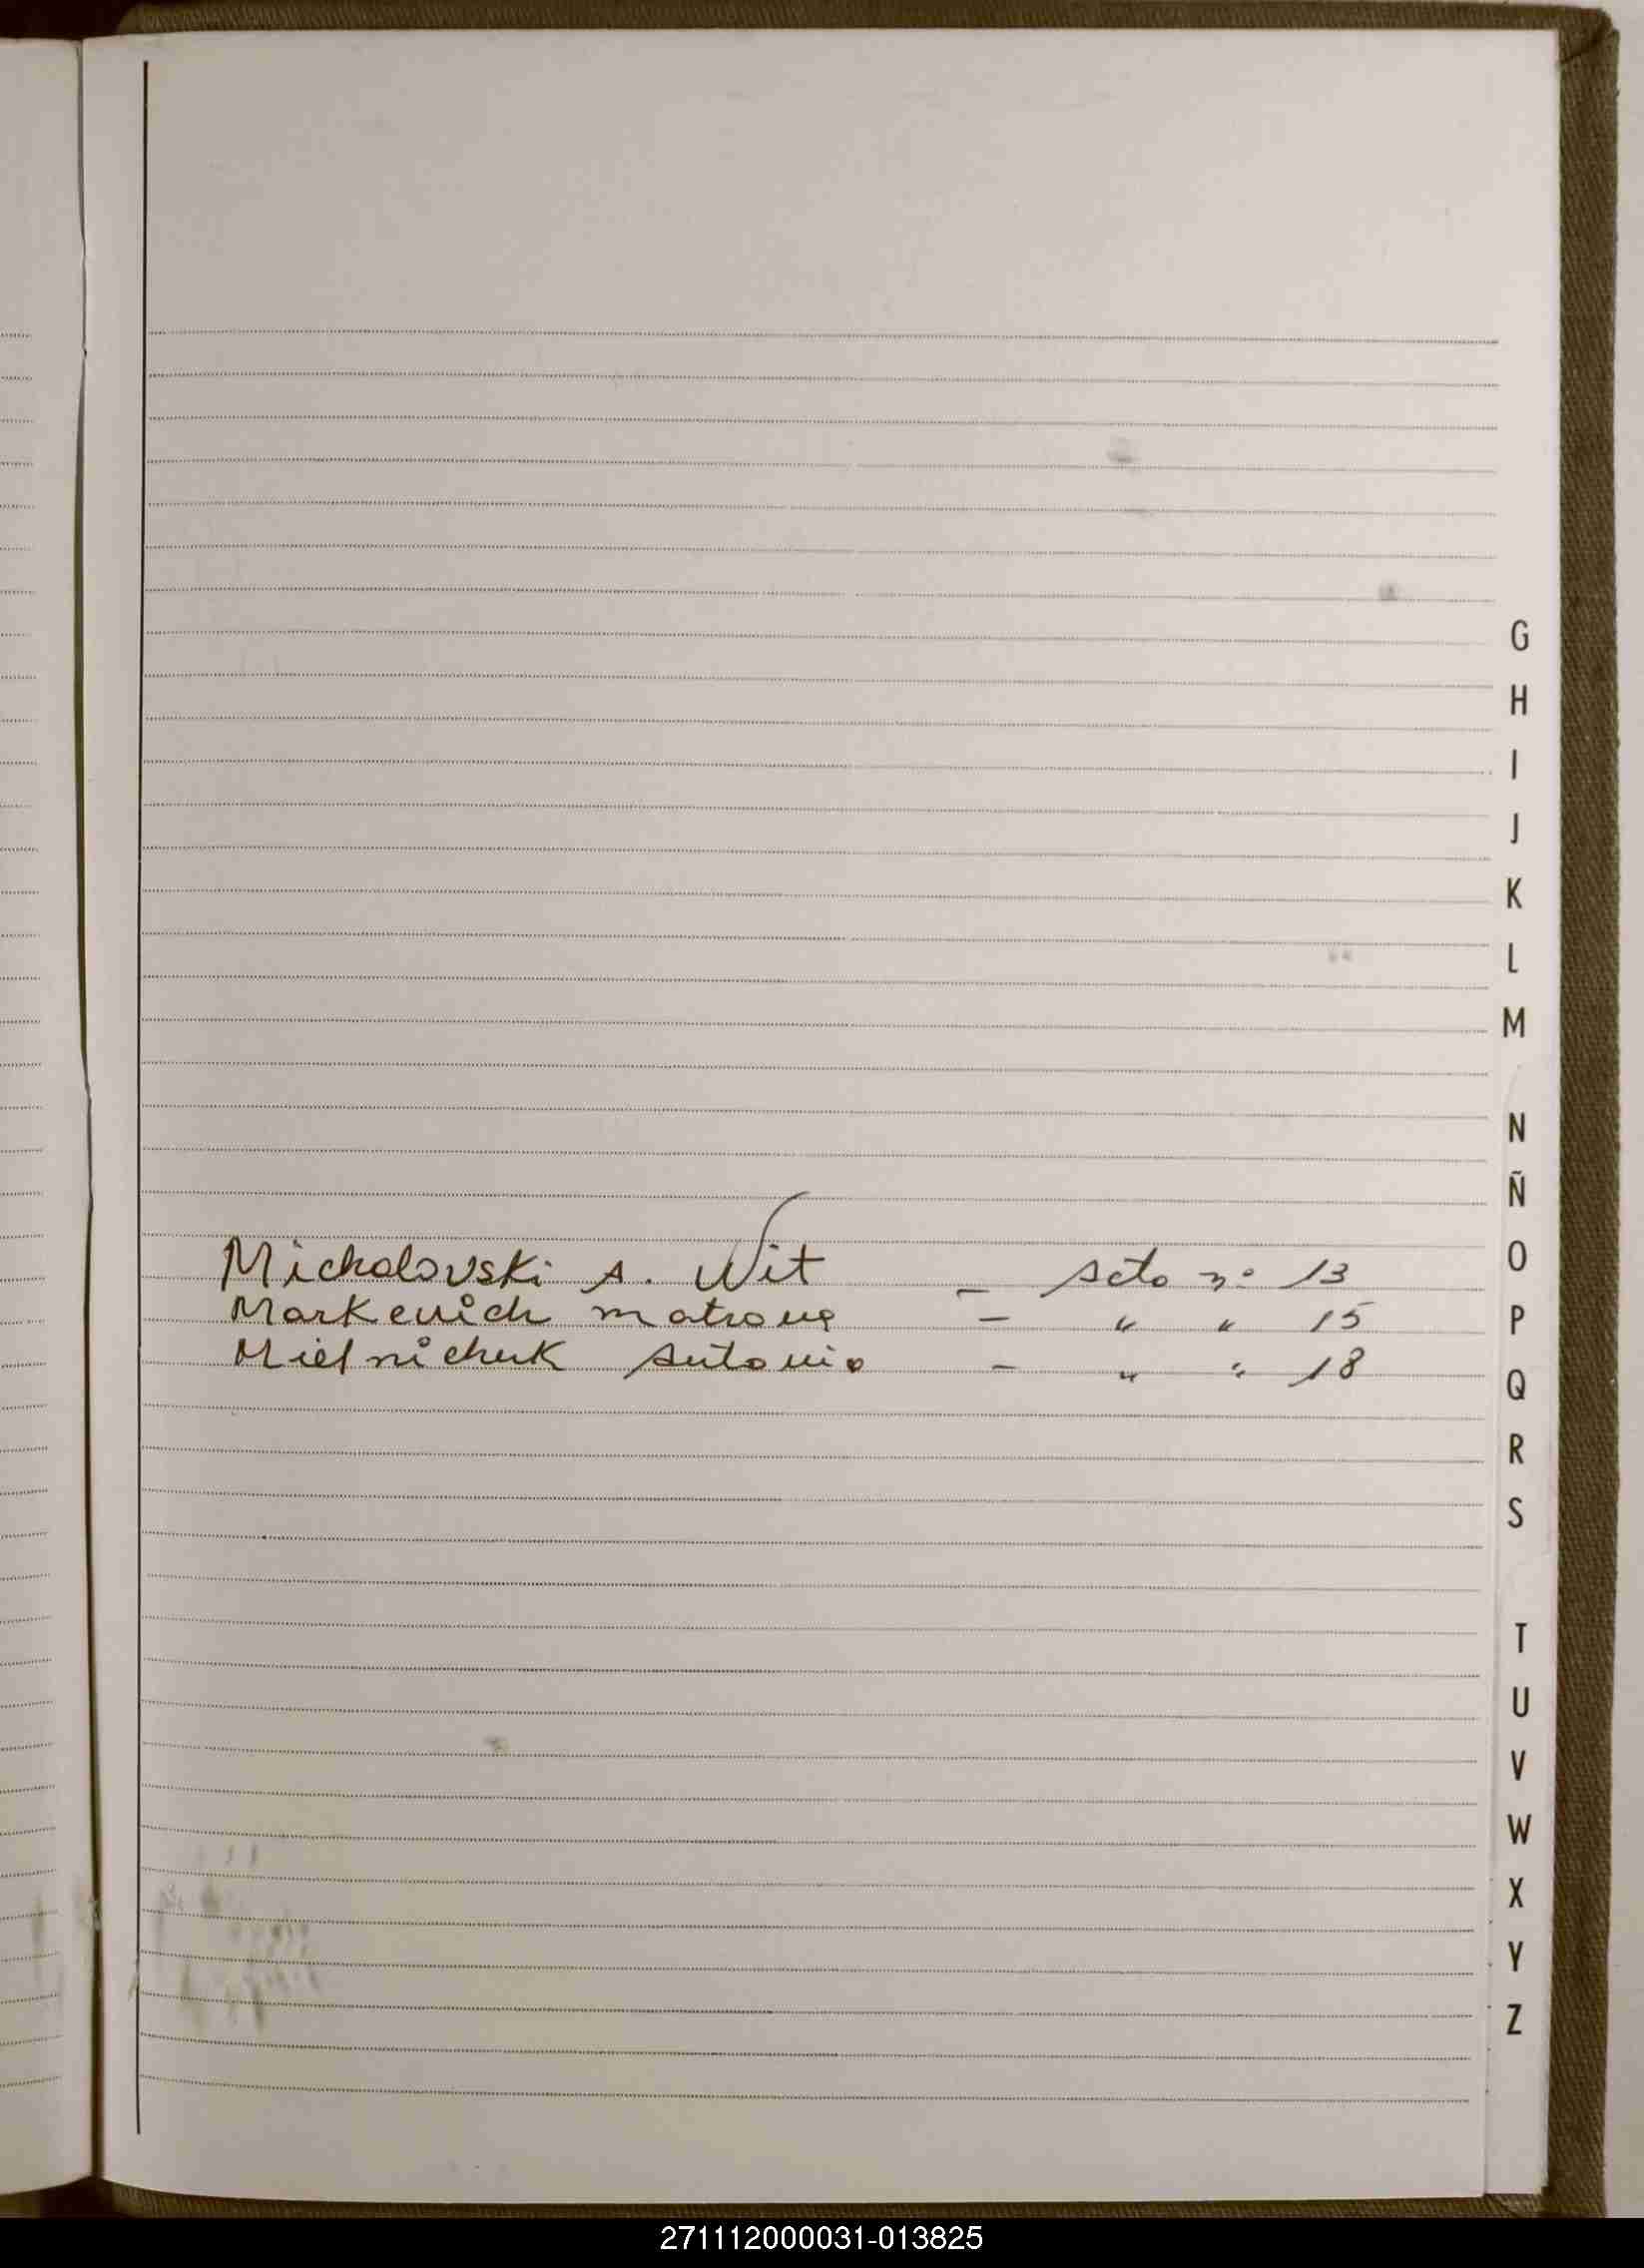 G
H
I
J
K
L
M
N
Ñ
O
P
Q
R
S
T
U
V
W
X
Y
Z
Michalovski A. Wit — Acta nº 13
Markevich Matrona — " " 15
Mielnichuk Antonio — " " 18
271112000031-013825